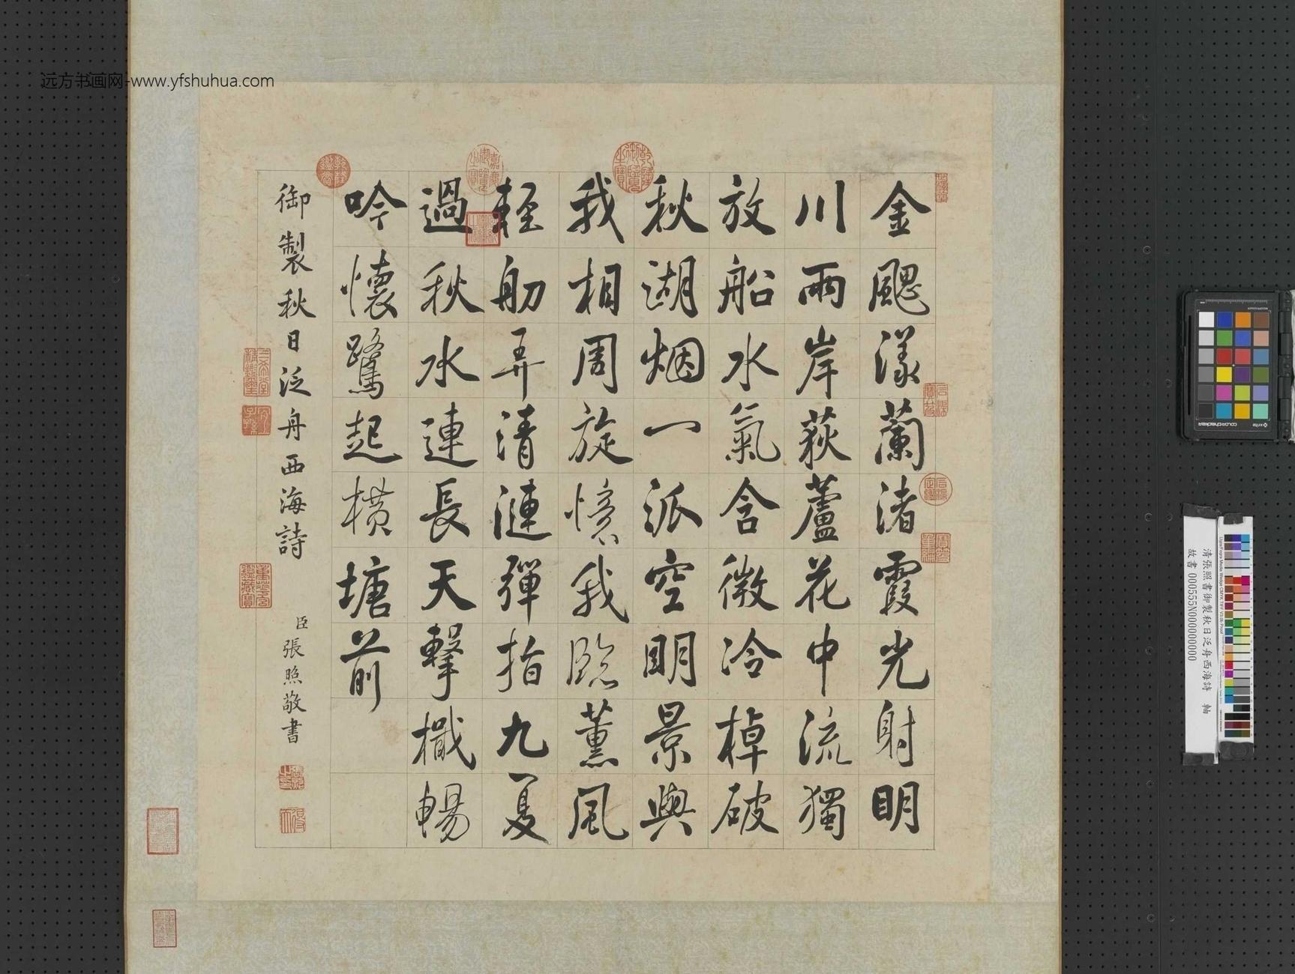 金颸漾蘭渚霞光射明
川兩岸荻蘆花中流獨
放船水氣含微冷棹破
秋湖烟一派空明景與
我相周旋憶我臨薰風
輕舠弄清漣彈指九夏
過秋水連長天擊檝暢
吟懷鷺起橫塘前
御製秋日泛舟西海詩
臣張照敬書
远方书画网-www.yfshuhua.com
清張照書御製秋日泛舟西海詩 軸
故書000555N000000000